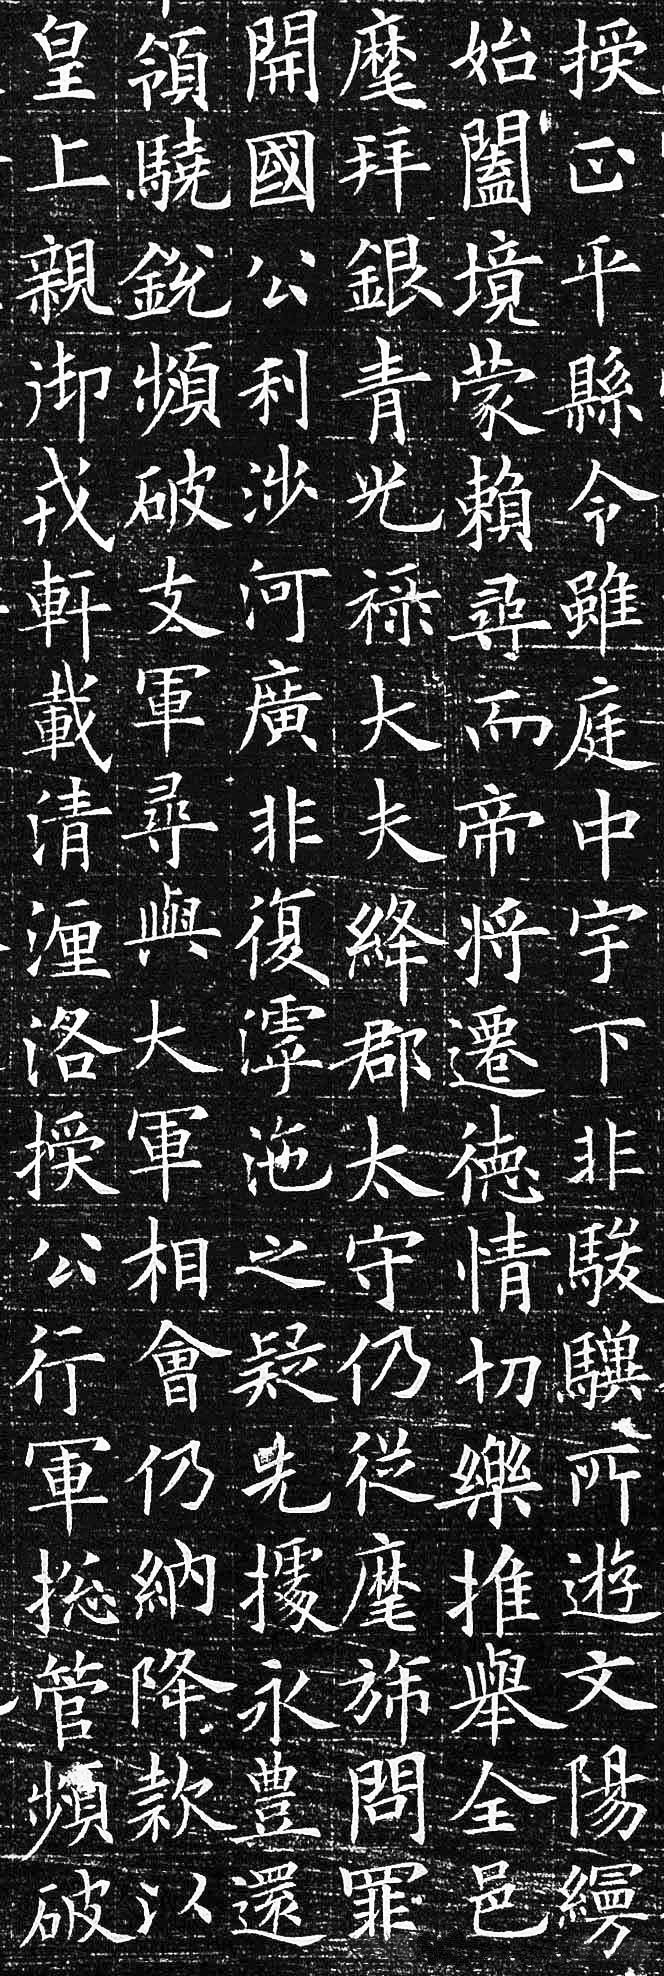 授正平縣令雖庭中宇下非駿驥所遊文陽縵
始闔境蒙賴尋而帝將遷德情切樂推舉全邑
麾拜銀青光祿大夫絳郡太守仍從麾旆問罪
開國公利涉河廣非復滹沲之疑先據永豊還
領驍銳頻破支軍尋與大軍相會仍納降款以
皇上親御戎軒載清瀍洛授公行軍摠管頻破